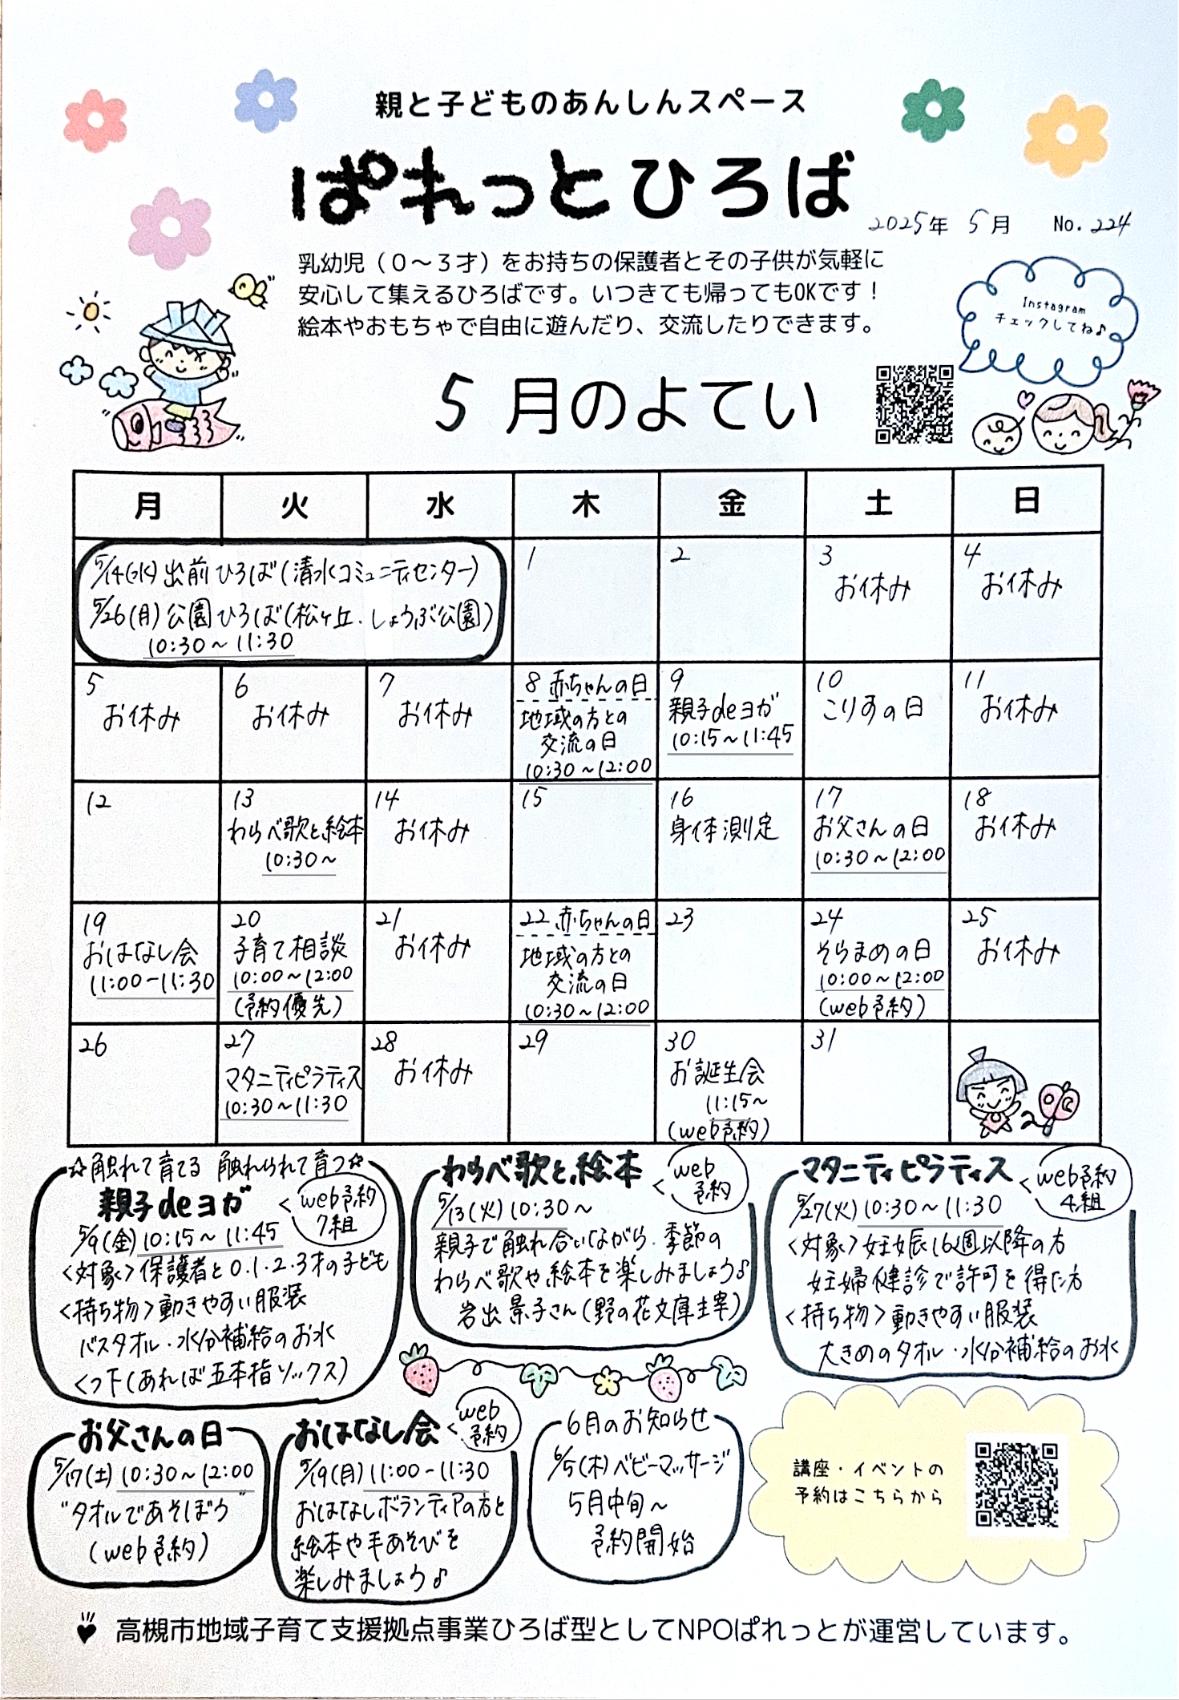 親と子どものあんしんスペース
ぱれっとひろば
2025年 5月 No.224
乳幼児（0～3才）をお持ちの保護者とその子供が気軽に
安心して集えるひろばです。いつきても帰ってもOKです！
絵本やおもちゃで自由に遊んだり、交流したりできます。
Instagram
チェックしてね♪
5月のよてい
月 火 水 木 金 土 日
5/14(水)出前ひろば(清水コミュニティセンター)
5/26(月)公園ひろば(松ヶ丘・しょうぶ公園)
10:30～11:30
1
2
3
お休み
4
お休み
5
お休み
6
お休み
7
お休み
8 赤ちゃんの日
地域の方との
交流の日
10:30～12:00
9
親子deヨガ
10:15～11:45
10
こりすの日
11
お休み
12
13
わらべ歌と絵本
10:30～
14
お休み
15
16
身体測定
17
お父さんの日
10:30～12:00
18
お休み
19
おはなし会
11:00-11:30
20
子育て相談
10:00～12:00
(予約優先)
21
お休み
22 赤ちゃんの日
地域の方との
交流の日
10:30～12:00
23
24
そらまめの日
10:00～12:00
(web予約)
25
お休み
26
27
マタニティピラティス
10:30～11:30
28
お休み
29
30
お誕生会
11:15～
(web予約)
31
☆触れて育てる 触れられて育つ☆
親子deヨガ
web予約
7組
5/9(金)10:15～11:45
<対象>保護者と0.1.2.3才の子ども
<持ち物>動きやすい服装
バスタオル・水分補給のお水
くつ下(あれば五本指ソックス)
わらべ歌と絵本
web
予約
5/13(火)10:30～
親子で触れ合いながら、季節の
わらべ歌や絵本を楽しみましょう♪
岩出景子さん(野の花文庫主宰)
マタニティピラティス
web予約
4組
5/27(火)10:30～11:30
<対象>妊娠16週以降の方
妊婦健診で許可を得た方
<持ち物>動きやすい服装
大きめのタオル・水分補給のお水
お父さんの日
5/17(土)10:30～12:00
"タオルであそぼう"
(web予約)
おはなし会
web
予約
5/19(月)11:00-11:30
おはなしボランティアの方と
絵本や手あそびを
楽しみましょう♪
6月のお知らせ
6/5(木)ベビーマッサージ
5月中旬～
予約開始
講座・イベントの
予約はこちらから
高槻市地域子育て支援拠点事業ひろば型としてNPOぱれっとが運営しています。